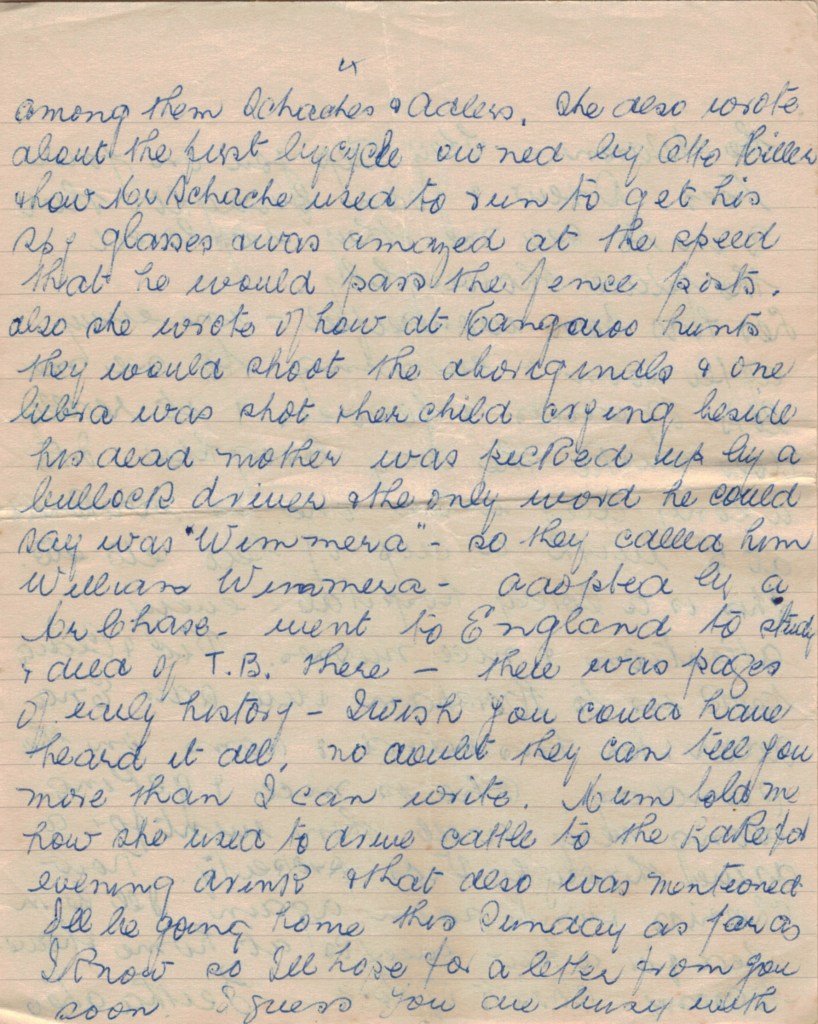 4
among them Schaches & Adlers. She also wrote
about the first bycycle owned by Otto Hiller
& how Mr Schache used to run to get his
spy glasses & was amazed at the speed
that he would pass the fence posts.
also she wrote of how at Kangaroo hunts
they would shoot the aboriginals & one
lubra was shot & her child crying beside
his dead mother was picked up by a
bullock driver & the only word he could
say was "Wimmera" - so they called him
William Wimmera - adopted by a
Mr Chase - went to England to study
& died of T.B. there - there was pages
of early history - I wish you could have
heard it all, no doubt they can tell you
more than I can write. Mum told me
how she used to drive cattle to the Lake for
evening drink & that also was mentioned
I'll be going home this Sunday as far as
I know so I'll hope for a letter from you
soon. I guess you are busy with